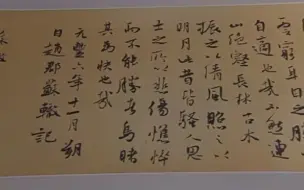 雲窮耳目之勝
自適也哉不然連
山絕壑長林古木
振之以清風照之以
明月此皆騷人思
士之所以悲傷憔悴
而不能勝者烏睹
其為快也哉
元豐六年十一月朔
日趙郡蘇轍記